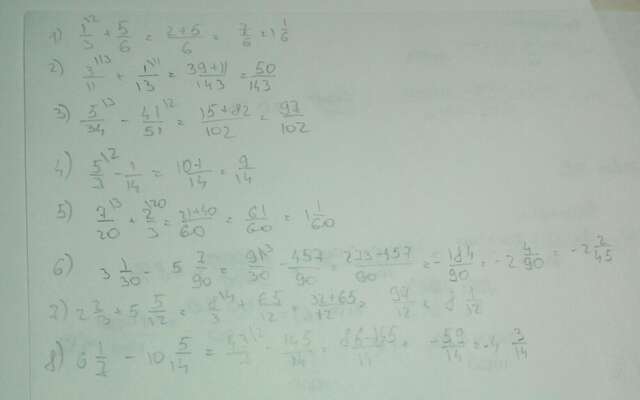 1) 1/3 \2 + 5/6 = 2+5/6 = 7/6 = 1 1/6
2) 3/11 \13 + 1/13 \11 = 39+11/143 = 50/143
3) 5/34 \3 - 41/51 \2 = 15+82/102 = 97/102
4) 5/7 \2 - 1/14 = 10-1/14 = 9/14
5) 7/20 \3 + 2/3 \20 = 21+40/60 = 61/60 = 1 1/60
6) 3 1/30 - 5 7/90 = 91/30 \3 - 457/90 = 273+457/90 = - 184/90 = -2 4/90 = -2 2/45
7) 2 2/3 + 5 5/12 = 8/3 \4 + 65/12 = 32+65/12 = 97/12 = 8 1/12
8) 6 1/7 - 10 5/14 = 43/7 \2 - 145/14 = 86-145/14 = - 59/14 = -4 3/14